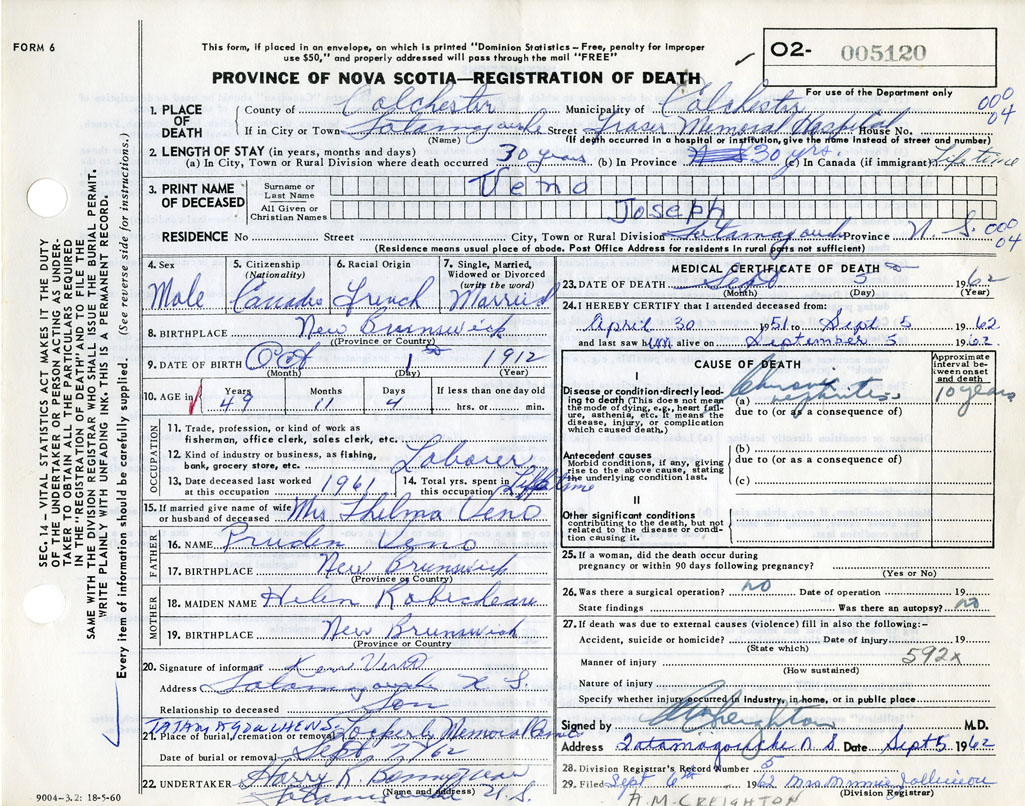 FORM 6
This form, if placed in an envelope, on which is printed "Dominion Statistics—Free, penalty for improper
use $50," and properly addressed will pass through the mail "FREE"
O2- 005120
For use of the Department only
PROVINCE OF NOVA SCOTIA—REGISTRATION OF DEATH
000
04
1. PLACE OF DEATH
County of Colchester Municipality of Colchester
If in City or Town Tatamagouche Street Fraser Memorial Hospital House No.
(Name) (If death occurred in a hospital or institution, give the name instead of street and number)
2. LENGTH OF STAY (in years, months and days)
(a) In City, Town or Rural Division where death occurred 30 years (b) In Province 30 yrs. (c) In Canada (if immigrant) Life time
3. PRINT NAME OF DECEASED
Surname or Last Name Veno
All Given or Christian Names Joseph
RESIDENCE No. Street City, Town or Rural Division Tatamagouche Province N. S. 000
04
(Residence means usual place of abode. Post Office Address for residents in rural parts not sufficient)
4. Sex Male
5. Citizenship (Nationality)
6. Racial Origin French
7. Single, Married, Widowed or Divorced (write the word) Married
8. BIRTHPLACE New Brunswick
(Province or Country)
9. DATE OF BIRTH Oct 1 1912
(Month) (Day) (Year)
10. AGE in Years 49 Months 11 Days 4 If less than one day old hrs. or min.
OCCUPATION
11. Trade, profession, or kind of work as
fisherman, office clerk, sales clerk, etc.
12. Kind of industry or business, as fishing,
bank, grocery store, etc. Laborer
13. Date deceased last worked
at this occupation 1961
14. Total yrs. spent in
this occupation Lifetime
15. If married give name of wife
or husband of deceased Mrs Thelma Veno
FATHER
16. NAME Veno
17. BIRTHPLACE New Brunswick
(Province or Country)
MOTHER
18. MAIDEN NAME Helen
19. BIRTHPLACE New Brunswick
(Province or Country)
20. Signature of informant Veno
Address Tatamagouche N. S.
Relationship to deceased Son
TATAMAGOUCHE NS
21. Place of burial, cremation or removal Memorial
Date of burial or removal Sept 7/62
22. UNDERTAKER Harry
(Name and address)
Tatamagouche N. S.
9004-3.2: 18-5-60
MEDICAL CERTIFICATE OF DEATH
23. DATE OF DEATH Sept 5 1962
(Month) (Day) (Year)
24. I HEREBY CERTIFY that I attended deceased from:
April 30 1951 to Sept 5 1962
and last saw him alive on September 5 1962.
CAUSE OF DEATH
Approximate interval between onset and death
I
Disease or condition directly leading to death (This does not mean
the mode of dying, e.g., heart failure, asthenia, etc. It means the
disease, injury, or complication
which caused death.)
(a) Chronic nephritis 10 years
due to (or as a consequence of)
Antecedent causes
Morbid conditions, if any, giving
rise to the above cause, stating
the underlying condition last.
(b)
due to (or as a consequence of)
(c)
II
Other significant conditions
contributing to the death, but not
related to the disease or condition causing it.
25. If a woman, did the death occur during
pregnancy or within 90 days following pregnancy?
(Yes or No)
26. Was there a surgical operation? no Date of operation 19
State findings Was there an autopsy? no
27. If death was due to external causes (violence) fill in also the following:—
Accident, suicide or homicide? Date of injury 19
(State which)
592x
Manner of injury
(How sustained)
Nature of injury
Specify whether injury occurred in industry, in home, or in public place
Signed by Creighton M.D.
Address Tatamagouche N. S. Date Sept 5 1962
28. Division Registrar's Record Number 5
29. Filed Sept 6th 1962 Mrs Minnie
(Division Registrar)
A.M. CREIGHTON
SEC. 14—VITAL STATISTICS ACT MAKES IT THE DUTY
OF THE UNDERTAKER OR PERSON ACTING AS UNDER-
TAKER TO OBTAIN ALL THE PARTICULARS REQUIRED
IN THE "REGISTRATION OF DEATH" AND TO FILE THE
SAME WITH THE DIVISION REGISTRAR WHO SHALL ISSUE THE BURIAL PERMIT.
WRITE PLAINLY WITH UNFADING INK. THIS IS A PERMANENT RECORD.
Every item of information should be carefully supplied. (See reverse side for instructions.)